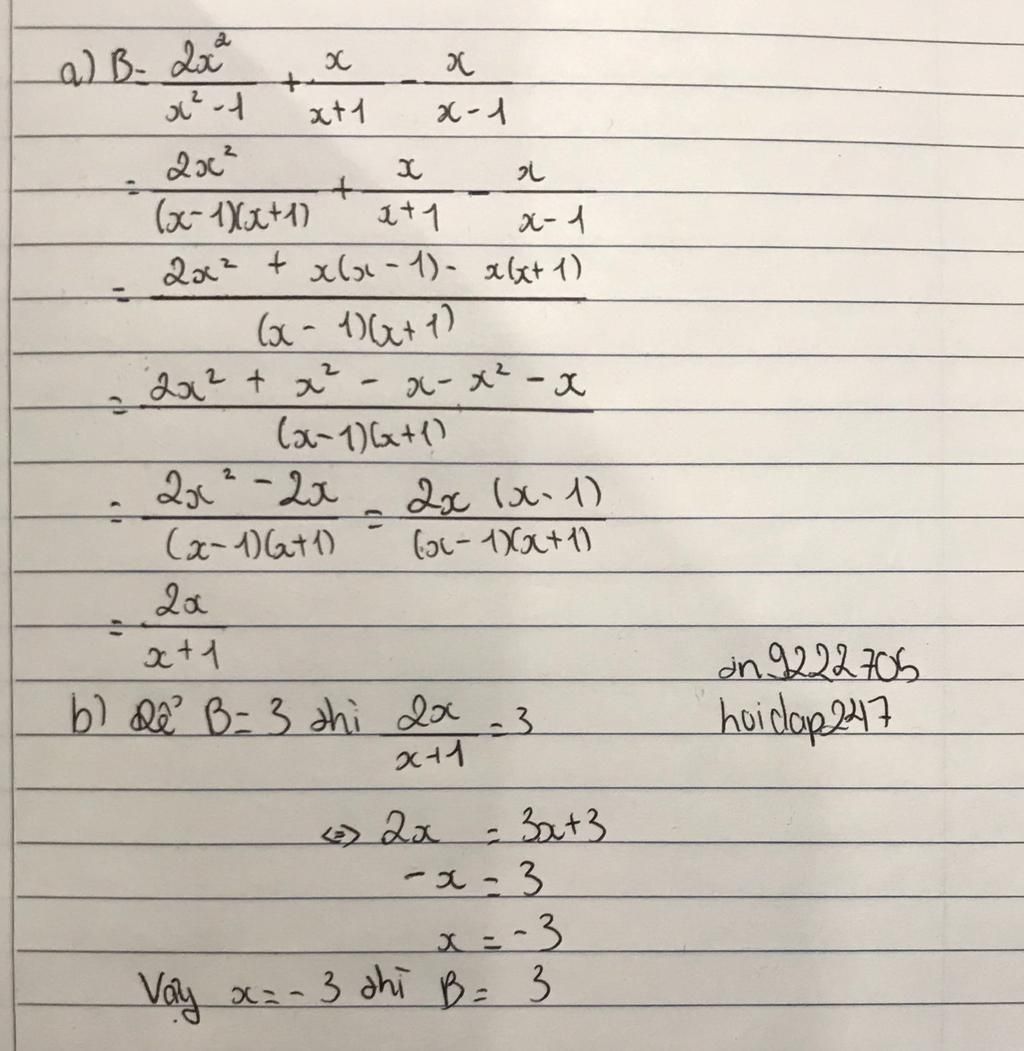 a) B = \frac{2x^2}{x^2 - 1} + \frac{x}{x+1} - \frac{x}{x-1}
= \frac{2x^2}{(x-1)(x+1)} + \frac{x}{x+1} - \frac{x}{x-1}
= \frac{2x^2 + x(x-1) - x(x+1)}{(x-1)(x+1)}
= \frac{2x^2 + x^2 - x - x^2 - x}{(x-1)(x+1)}
= \frac{2x^2 - 2x}{(x-1)(x+1)} = \frac{2x(x-1)}{(x-1)(x+1)}
= \frac{2x}{x+1}
b) Để B = 3 thì \frac{2x}{x+1} = 3
⇔ 2x = 3x+3
-x = 3
x = -3
Vậy x = -3 thì B = 3
hoidap247